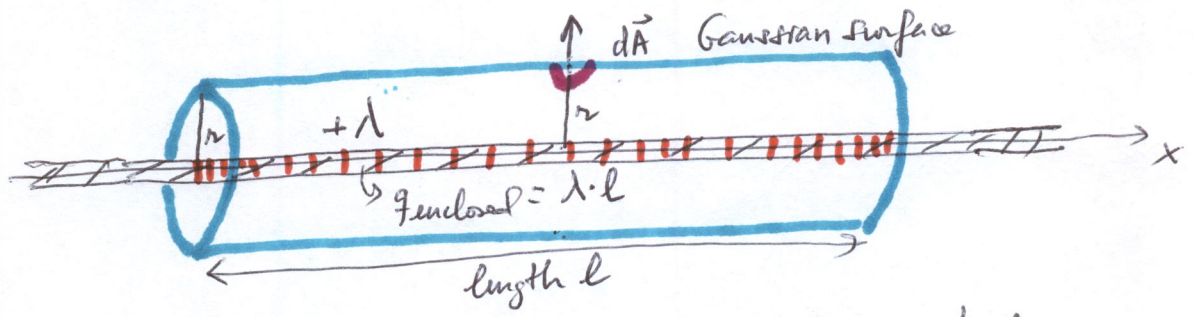 dA⃗ Gaussian surface
r
r
+λ
x
qenclosed = λ·l
length l